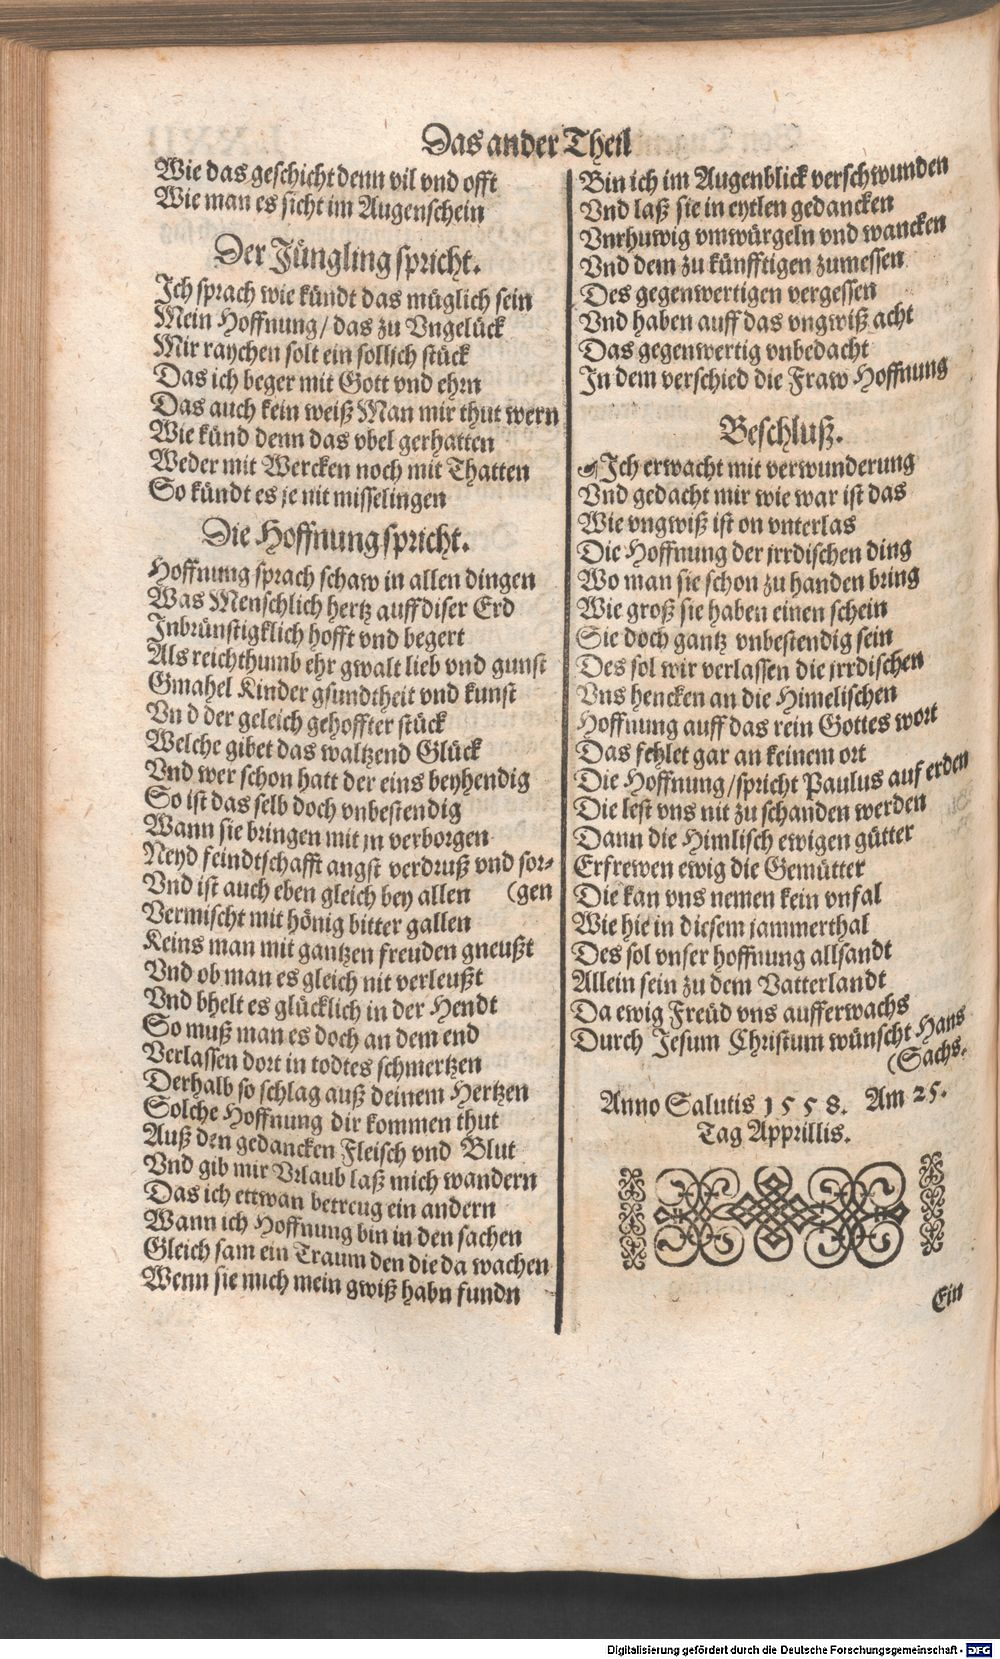 Das ander Theil
Wie das geschicht denn vil vnd offt
Wie man es sicht im Augenschein
Der Jüngling spricht.
Ich sprach wie kündt das müglich sein
Mein Hoffnung / das zu Vngelück
Mir raychen solt ein sollich stück
Das ich beger mit Gott vnd ehrn
Das auch kein weiß Man mir thut wern
Wie künd denn das vbel gerhatten
Weder mit Wercken noch mit Thatten
So kündt es je nit misselingen
Die Hoffnung spricht.
Hoffnung sprach schaw in allen dingen
Was Menschlich hertz auff diser Erd
Inbrünstigklich hofft vnd begert
Als reichthumb ehr gwalt lieb vnd gunst
Gmahel Kinder gsundtheit vnd kunst
Vn d der geleich gehoffter stück
Welche gibet das waltzend Glück
Vnd wer schon hatt der eins beyhendig
So ist das selb doch vnbestendig
Wann sie bringen mit jn verborgen
Neyd feindtschafft angst verdruß vnd sor-
Vnd ist auch eben gleich bey allen (gen
Vermischt mit hönig bitter gallen
Keins man mit gantzen freuden gneußt
Vnd ob man es gleich nit verleußt
Vnd bhelt es glücklich in der Hendt
So muß man es doch an dem end
Verlassen dort in todtes schmertzen
Derhalb so schlag auß deinem Hertzen
Solche Hoffnung dir kommen thut
Auß den gedancken Fleisch vnd Blut
Vnd gib mir Vrlaub laß mich wandern
Das ich ettwan betreug ein andern
Wann ich Hoffnung bin in den sachen
Gleich sam ein Traum den die da wachen
Wenn sie mich mein gwiß habn fundn
Bin ich im Augenblick verschwunden
Vnd laß sie in eytlen gedancken
Vnrhuwig vmwürgeln vnd wancken
Vnd dem zu künfftigen zumessen
Des gegenwertigen vergessen
Vnd haben auff das vngwiß acht
Das gegenwertig vnbedacht
In dem verschied die Fraw Hoffnung
Beschluß.
Ich erwacht mit verwunderung
Vnd gedacht mir wie war ist das
Wie vngwiß ist on vnterlas
Die Hoffnung der jrrdischen ding
Wo man sie schon zu handen bring
Wie groß sie haben einen schein
Sie doch gantz vnbestendig sein
Des sol wir verlassen die jrrdischen
Vns hencken an die Himelischen
Hoffnung auff das rein Gottes wort
Das fehlet gar an keinem ort
Die Hoffnung / spricht Paulus auf erden
Die lest vns nit zu schanden werden
Dann die Himlisch ewigen gütter
Erfrewen ewig die Gemütter
Die kan vns nemen kein vnfal
Wie hie in diesem jammerthal
Des sol vnser hoffnung allsandt
Allein sein zu dem Vatterlandt
Da ewig Freüd vns aufferwachs
Durch Jesum Christum wünscht Hans
(Sachs.
Anno Salutis 1558. Am 25.
Tag Apprillis.
Ein
Digitalisierung gefördert durch die Deutsche Forschungsgemeinschaft - DFG